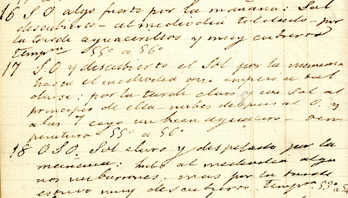 16 S.O algo fresco por la mañana: Sol
descubierto - al mediodia toldado - por
la tarde aguacerillos y muy cubierto
Tempra 55° a 56°
17 S.O y descubierto el Sol por la manana
hasta el mediodia que empieza a tol
darse: por la tarde claro y con sol al
principio de ella - nubes despues al O. y
a las 7 cayo un buen aguacero - tem
peratura 55° a 56°
18 O.S.O. Sol claro y despejado por la
manana: hubo al mediodia algu
nos nubarrones; mas por la tarde
estuvo muy descubierto. Tempra 55° a